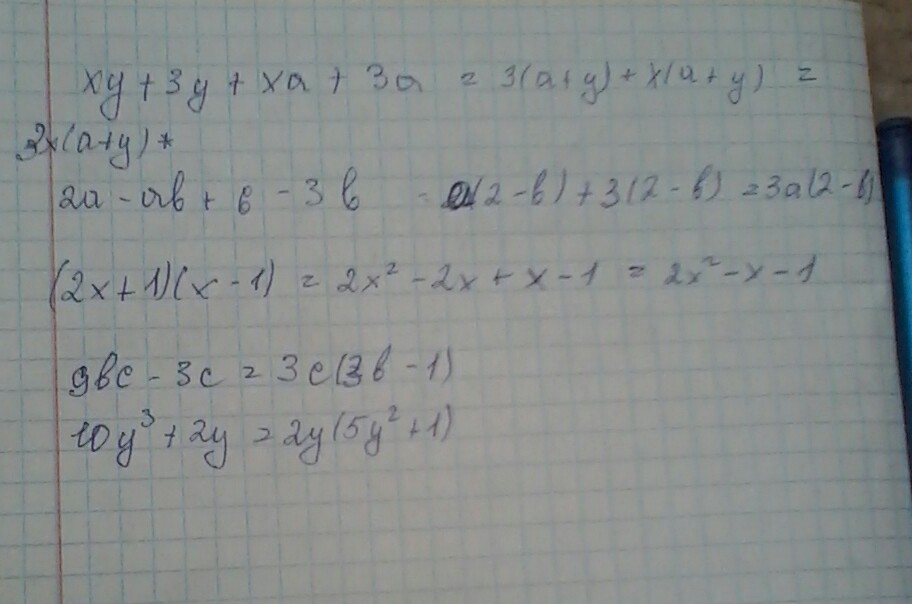 xy + 3y + xa + 3a = 3(a+y) + x(a+y) =
3x(a+y) *
2a - ab + 6 - 3b = a(2-b) + 3(2-b) = 3a(2-b)
(2x+1)(x-1) = 2x² - 2x + x - 1 = 2x² - x - 1
9bc - 3c = 3c(3b - 1)
10y³ + 2y = 2y(5y² + 1)